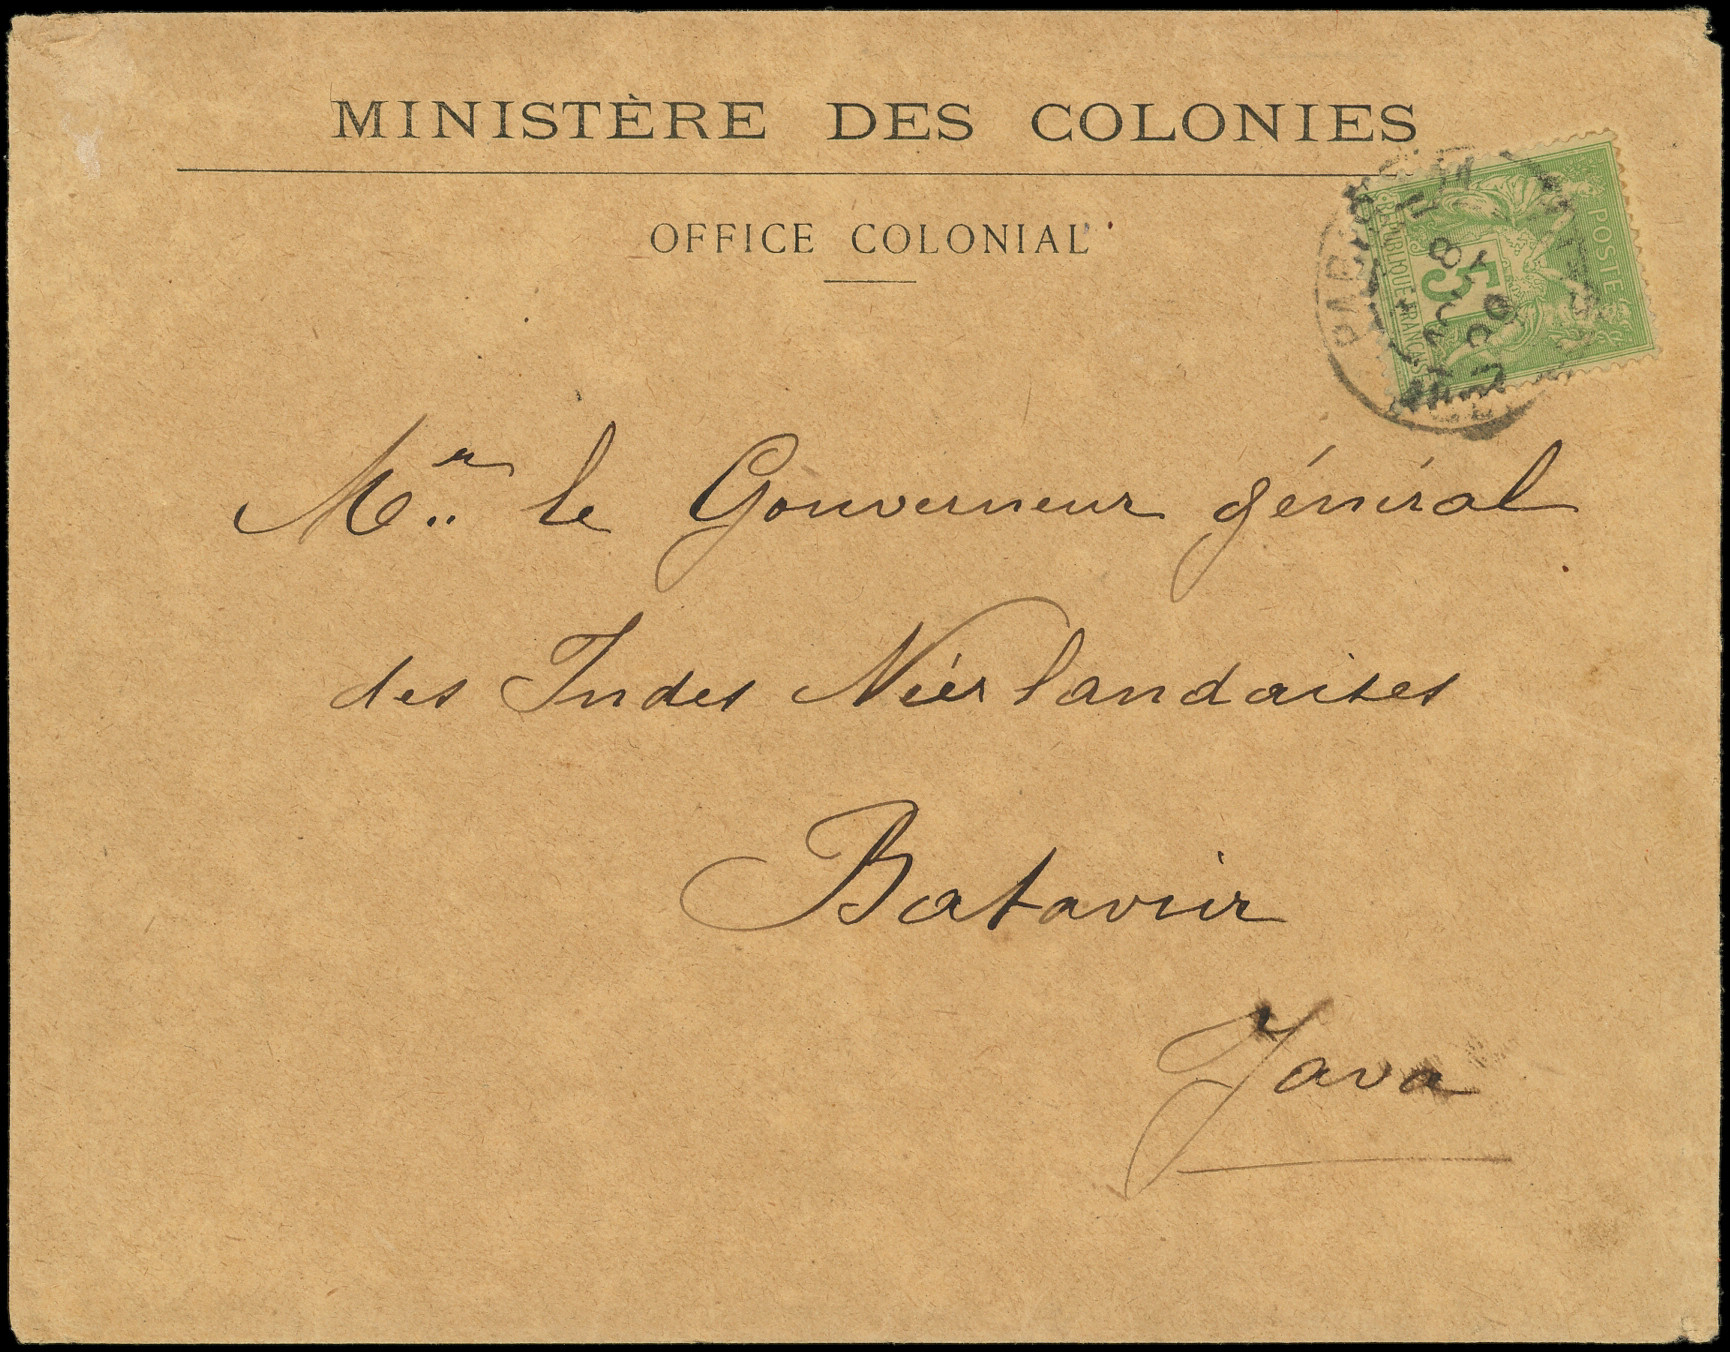 MINISTÈRE DES COLONIES
OFFICE COLONIAL
POSTES
5
RÉPUBLIQUE FRANÇAISE
PARIS
Mr le Gouverneur général
des Indes Néerlandaises
Batavia
Java